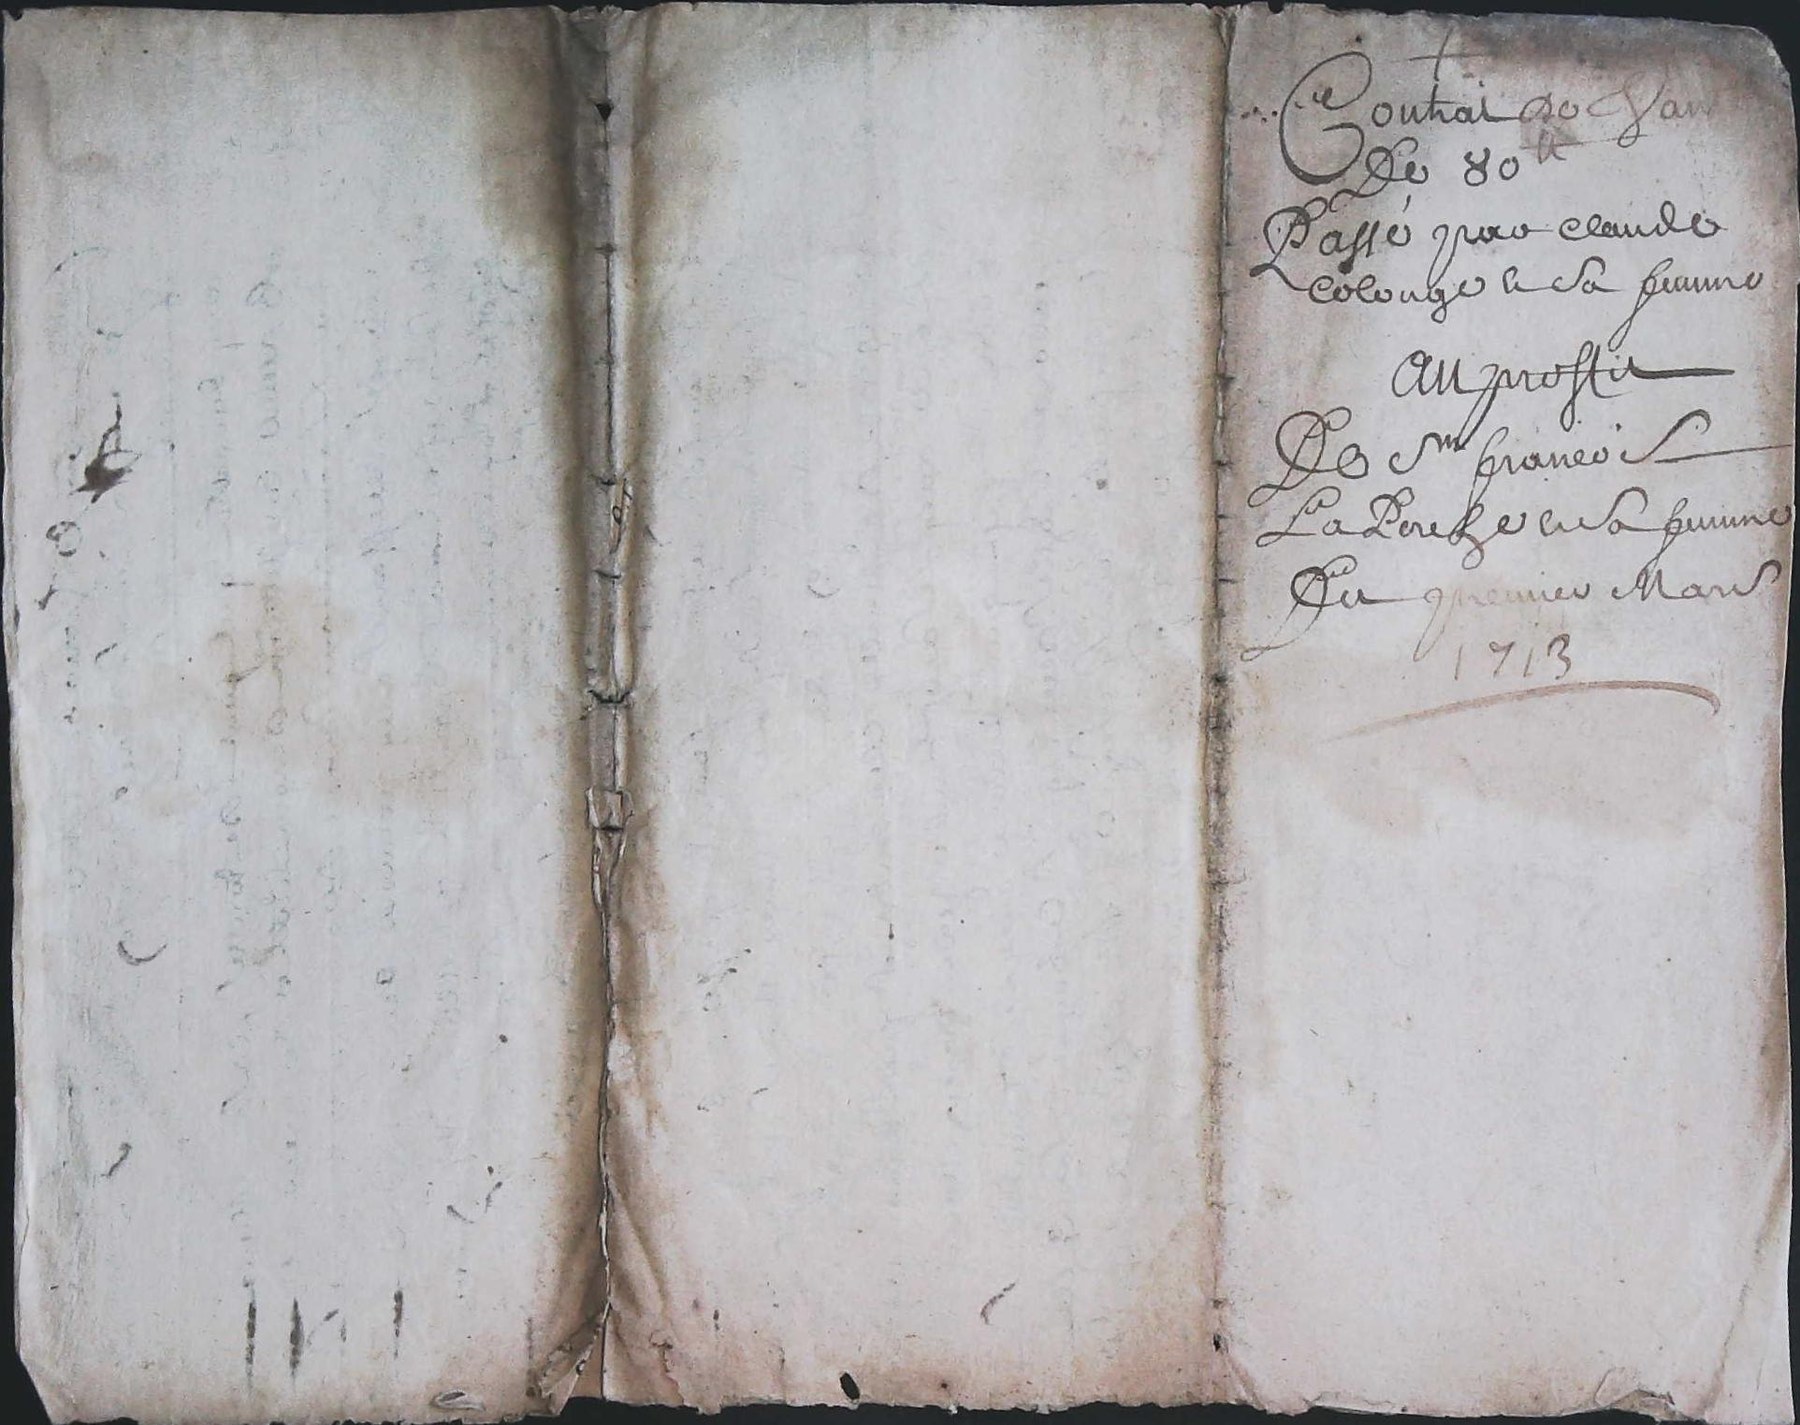 Contrat de
De 80ᵗᵗ
Passé par claude
colonge & Sa femme
au proffit
De Sʳ francois
La Perche & Sa femme
Du premier Mars
1713